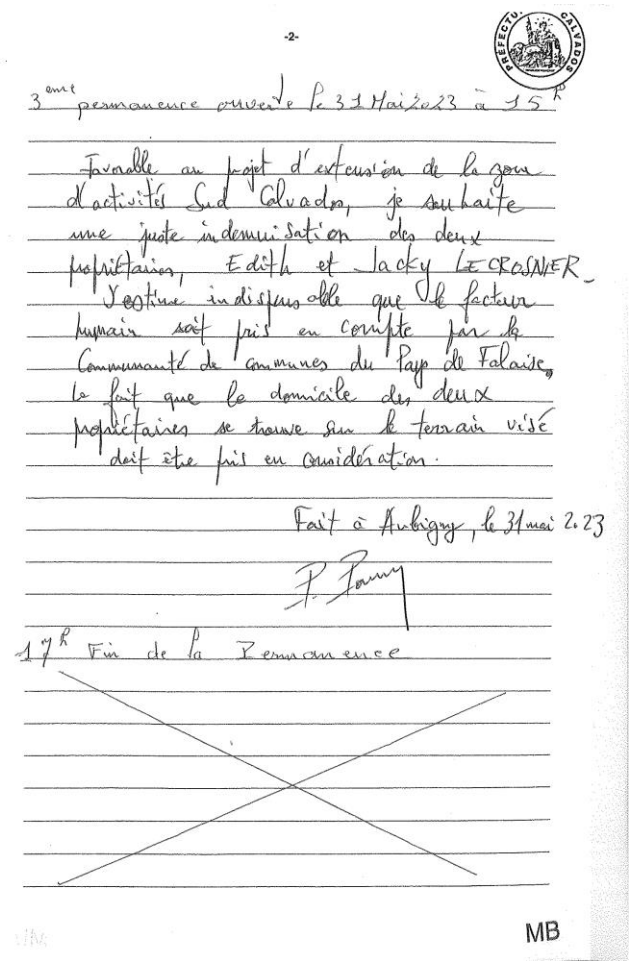 -2-
PRÉFECTURE CALVADOS
3eme permanence ouverte le 31 Mai 2023 à 15h
Favorable au projet d'extension de la zone
d'activités Sud Calvados, je souhaite
une juste indemnisation des deux
propriétaires, Edith et Jacky LECROSNIER_
J'estime indispensable que le facteur
humain soit pris en compte par la
Communauté de communes du Pays de Falaise,
le fait que le domicile des deux
propriétaires se trouve sur le terrain visé
doit être pris en considération.
Fait à Aubigny, le 31 mai 2023
17h Fin de la Permanence
MB